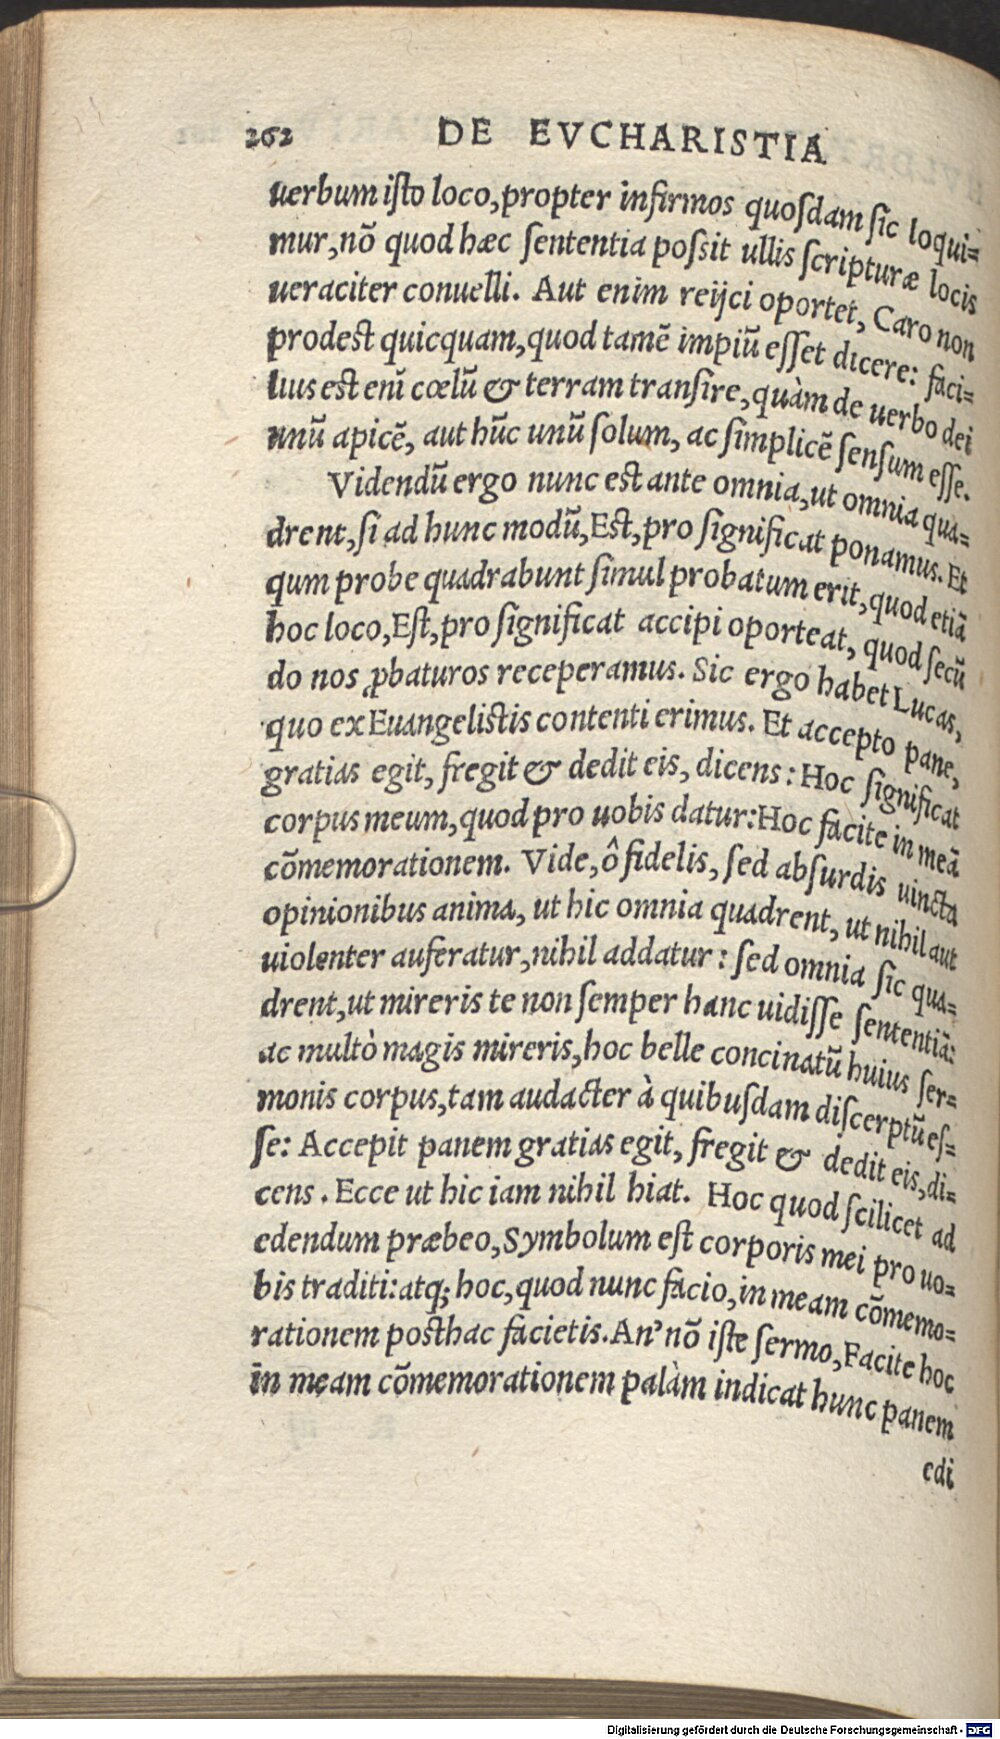 262 DE EVCHARISTIA
uerbum iſto loco, propter infirmos quoſdam ſic loqui=
mur, nõ quod hæc ſententia poſsit ullis ſcripturæ locis
ueraciter conuelli. Aut enim reijci oportet, Caro non
prodest quicquam, quod tamẽ impiũ eſſet dicere: faci=
lius est enĩ cœlũ & terram tranſire, quàm de uerbo dei
unũ apicẽ, aut hũc unũ ſolum, ac ſimplicẽ ſenſum eſſe.
Videndũ ergo nunc est ante omnia, ut omnia qua=
drent, ſi ad hunc modũ, Est, pro ſignificat ponamus. Et
qum probe quadrabunt ſimul probatum erit, quod etiã
hoc loco, Est, pro ſignificat accipi oporteat, quod ſecũ
do nos ꝓbaturos receperamus. Sic ergo habet Lucas,
quo ex Euangelistis contenti erimus. Et accepto pane,
gratias egit, fregit & dedit eis, dicens: Hoc ſignificat
corpus meum, quod pro uobis datur: Hoc facite in meã
cõmemorationem. Vide, ô fidelis, ſed abſurdis uincta
opinionibus anima, ut hic omnia quadrent, ut nihil aut
uiolenter auferatur, nihil addatur: ſed omnia ſic qua=
drent, ut mireris te non ſemper hanc uidiſſe ſententiã:
ac multò magis mireris, hoc belle concinatũ huius ſer=
monis corpus, tam audacter à quibuſdam diſcerptũ eſ=
ſe: Accepit panem gratias egit, fregit & dedit eis, di=
cens. Ecce ut hic iam nihil hiat. Hoc quod ſcilicet ad
edendum præbeo, Symbolum eſt corporis mei pro uo=
bis traditi: atq; hoc, quod nunc facio, in meam cõmemo=
rationem posthac facietis. An’ nõ iſte ſermo, Facite hoc
in meam cõmemorationem palàm indicat hunc panem
edi
Digitalisierung gefördert durch die Deutsche Forschungsgemeinschaft - DFG